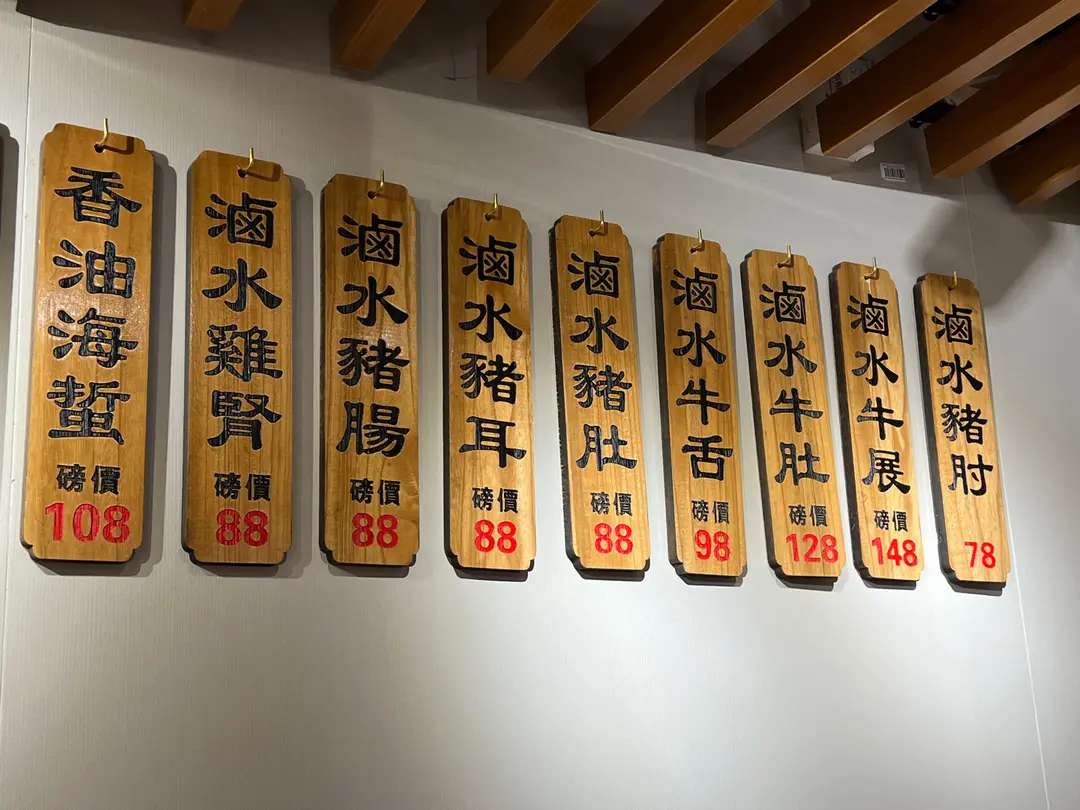 香油海蜇
磅價
108
滷水雞腎
磅價
88
滷水豬腸
磅價
88
滷水豬耳
磅價
88
滷水豬肚
磅價
88
滷水牛舌
磅價
98
滷水牛肚
磅價
128
滷水牛展
磅價
148
滷水豬肘
78